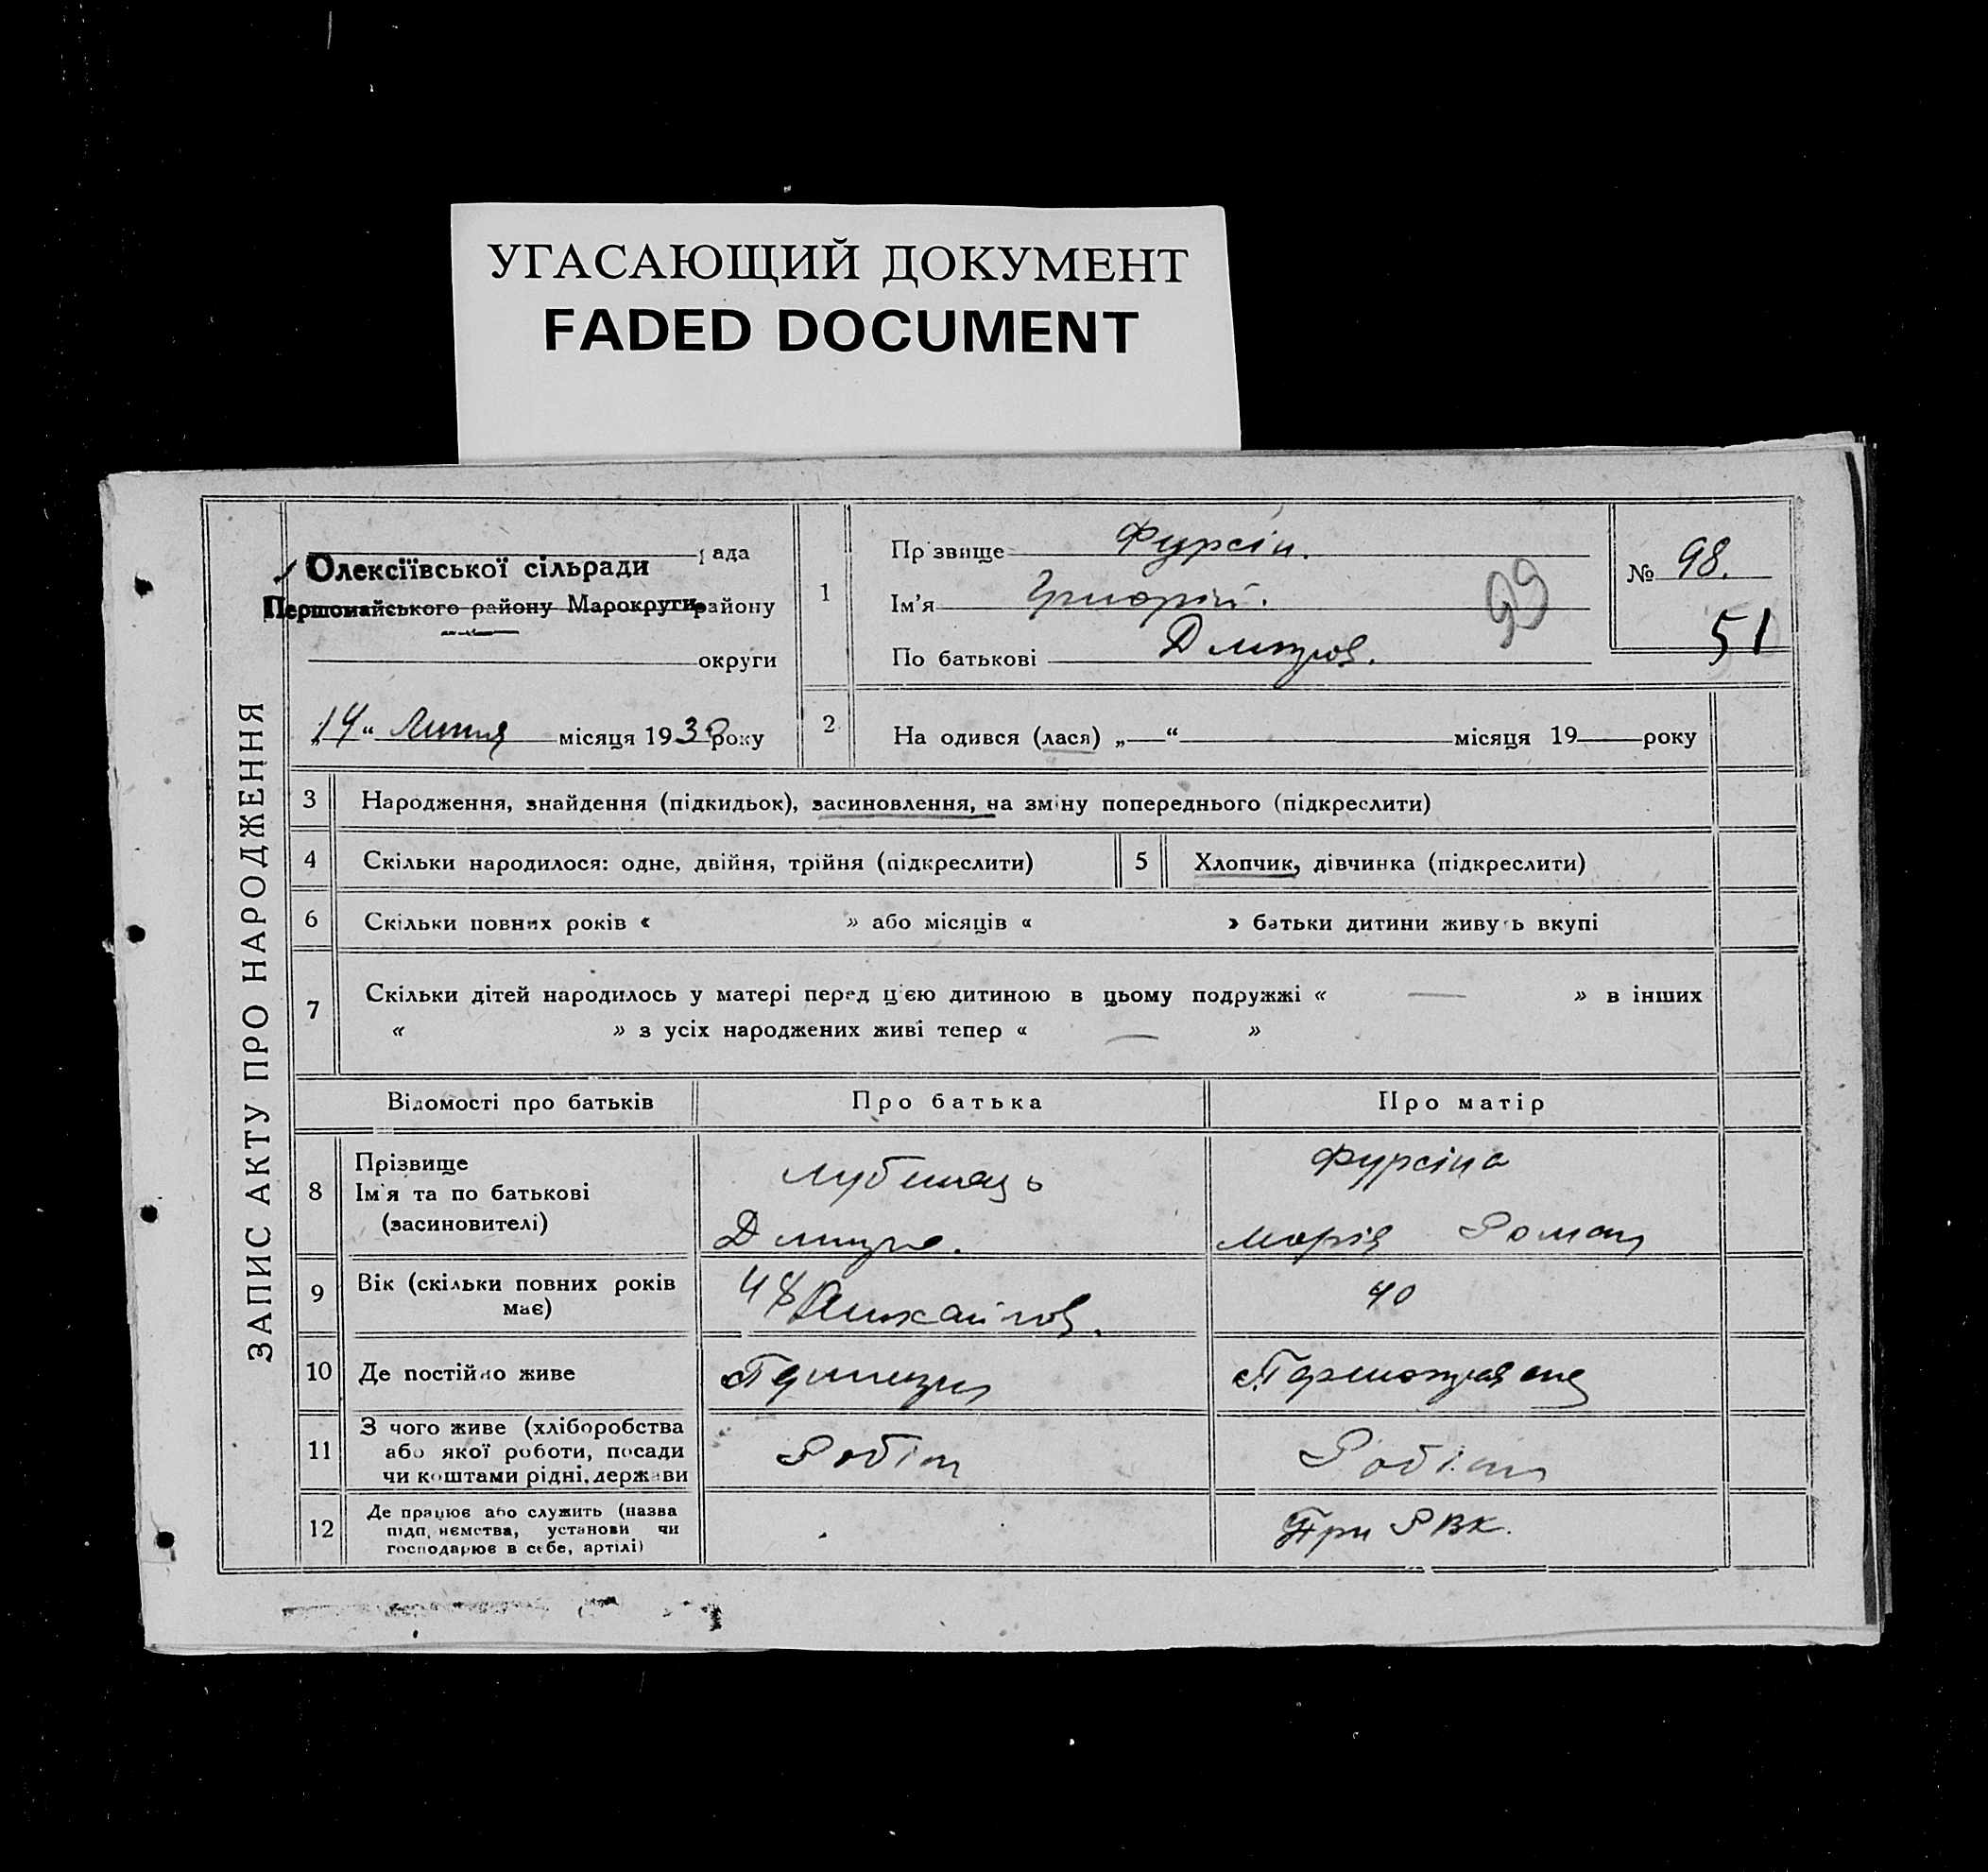 УГАСАЮЩИЙ ДОКУМЕНТ
FADED DOCUMENT
ЗАПИС АКТУ ПРО НАРОДЖЕННЯ
рада
Олексіївської сільради
Першомайського району Марокруги району
округи
14 “ Липня місяця 193 року
1
Прізвище Фурсін.
Ім'я Григорій.
По батькові Дмитров.
99
№ 98.
51
2 Народився (лася) „ “ місяця 19 року
3 Народження, знайдення (підкидьок), засиновлення, на зміну попереднього (підкреслити)
4 Скільки народилося: одне, двійня, трійня (підкреслити)
5 Хлопчик, дівчинка (підкреслити)
6 Скільки повних років « » або місяців « » батьки дитини живуть вкупі
7 Скільки дітей народилось у матері перед цією дитиною в цьому подружжі « — » в інших
« » з усіх народжених живі тепер « — »
Відомості про батьків Про батька Про матір
8 Прізвище
Ім'я та по батькові
(засиновителі)
Дмитро.
Фурсіна
Марія Роман
9 Вік (скільки повних років
має)
48 Михайлов.
40
10 Де постійно живе
11 З чого живе (хліборобства
або якої роботи, посади
чи коштами рідні, держави
Робіт
Робітн
12 Де працює або служить (назва
підприємства, установи чи
господарює в себе, артілі)
При РВК.